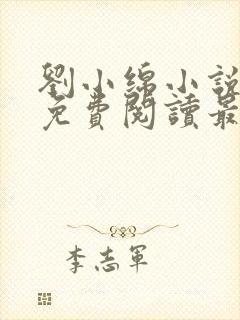 劉小綿小說
免費閱讀最
李志軍